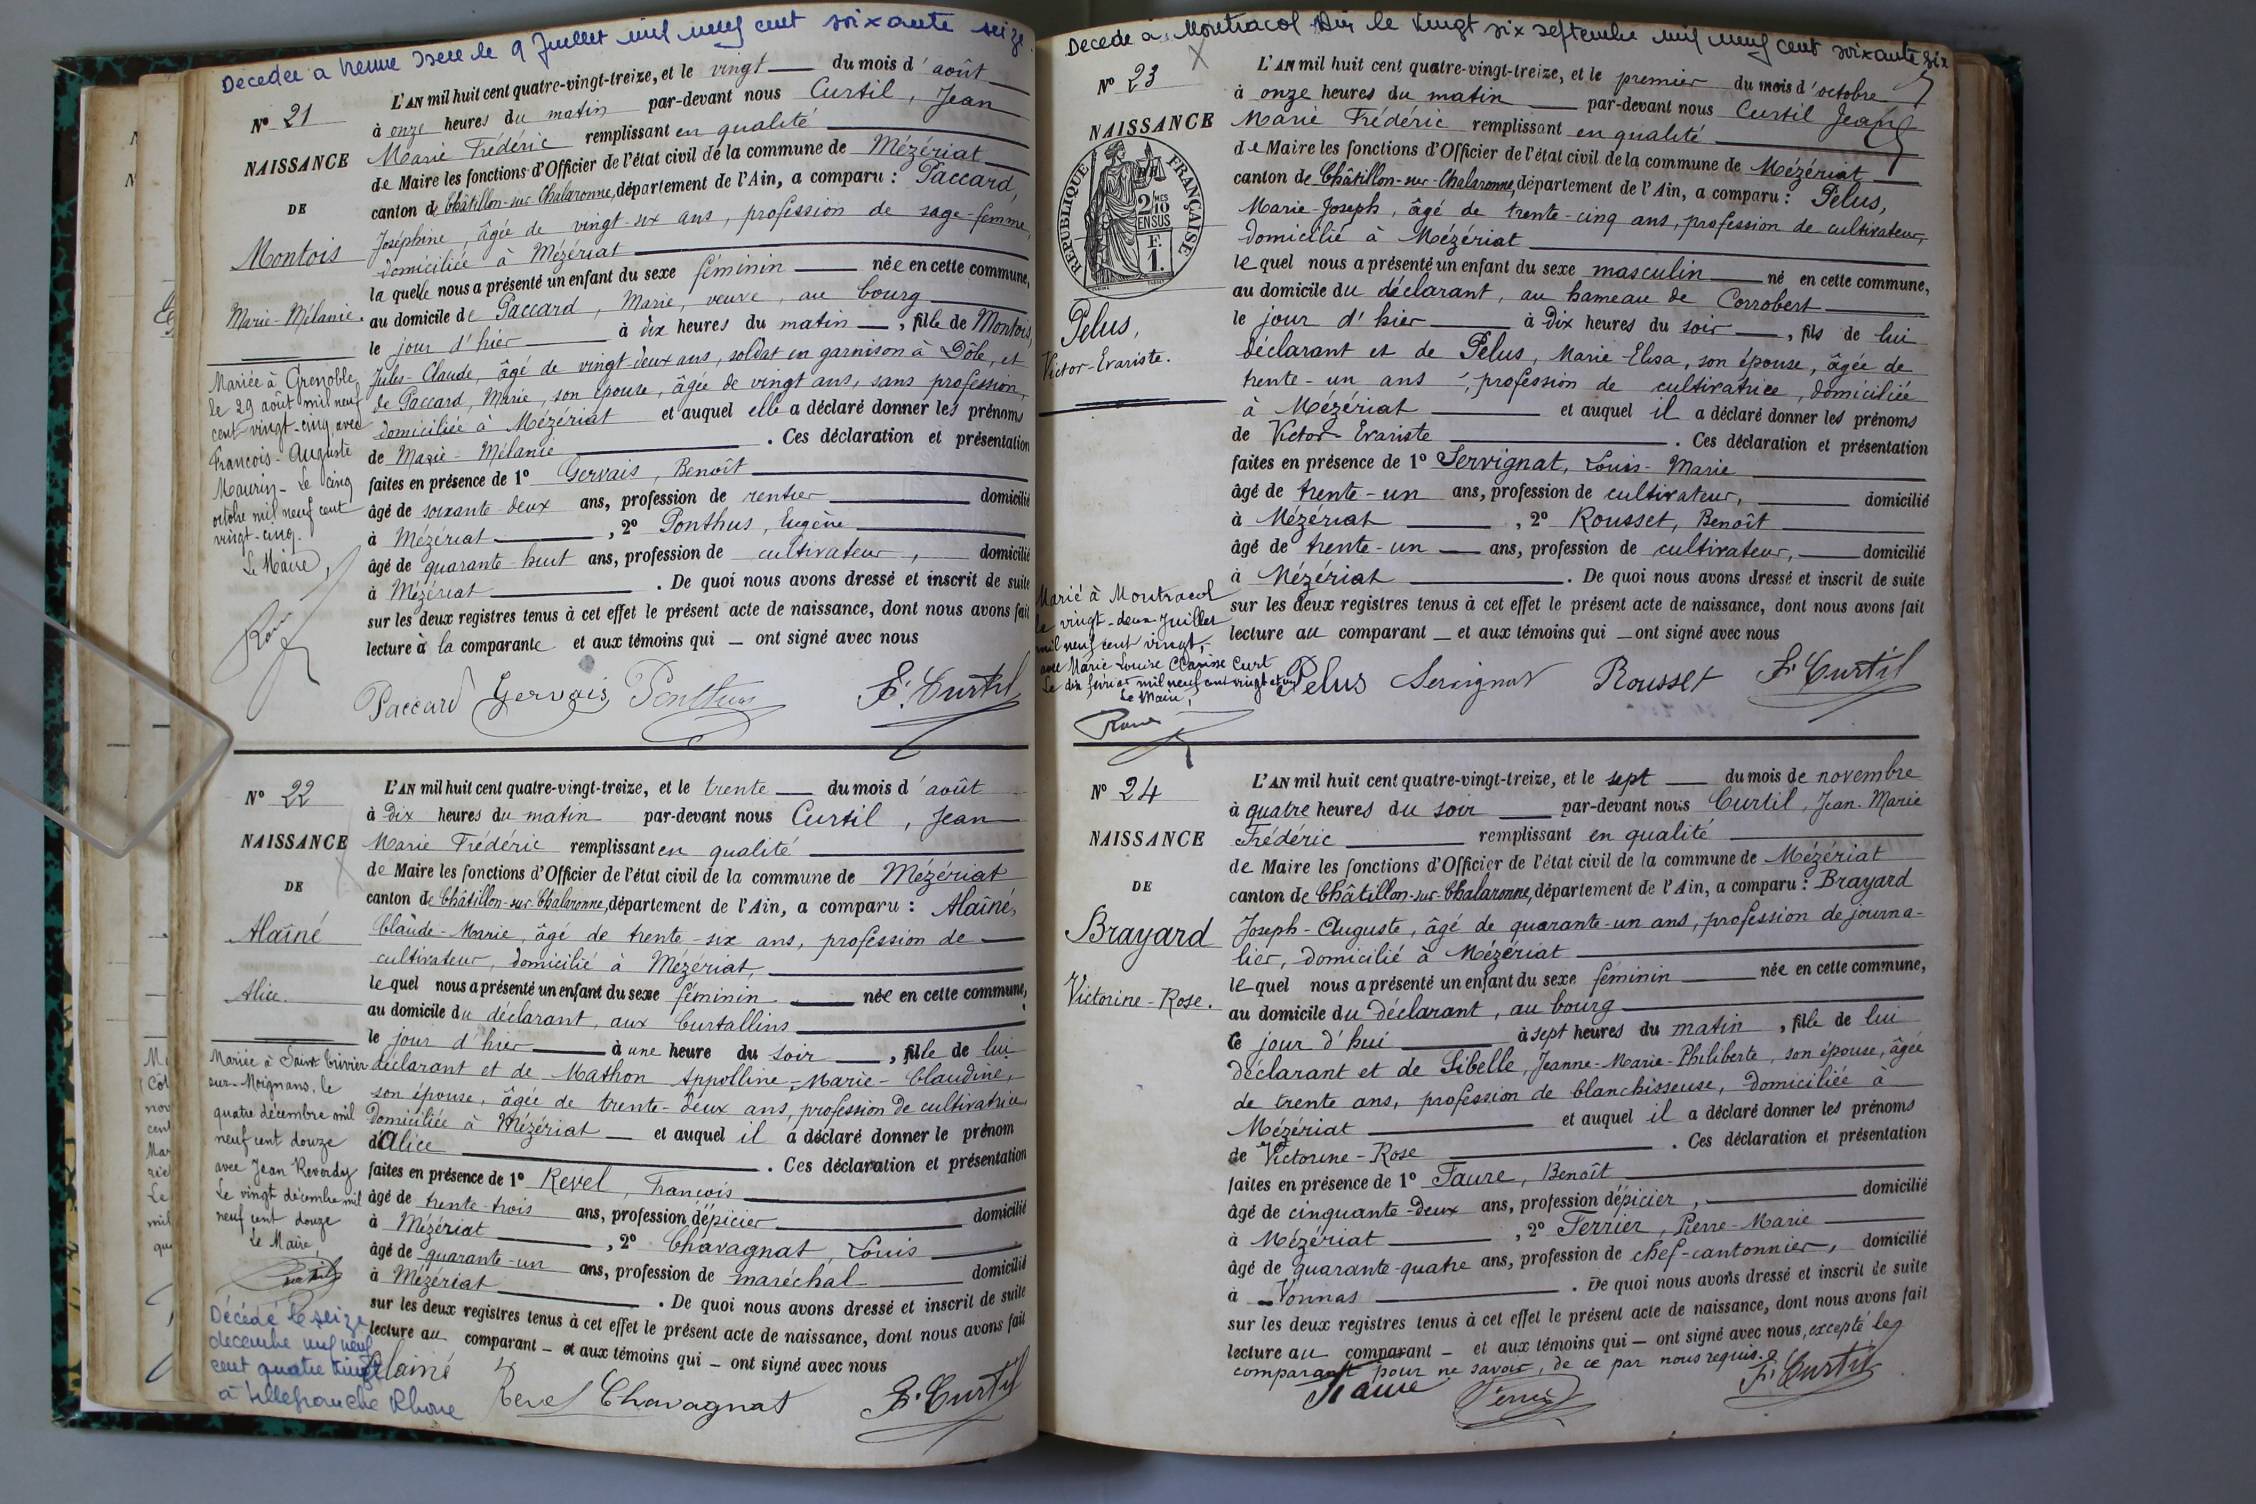 Décédée a Vienne Isère le 9 Juillet mil neuf cent soixante seize
N° 21
NAISSANCE
DE
Montois
Marie-Mélanie.
Mariée à Grenoble
le 29 août mil neuf
cent vingt-cinq avec
François-Auguste
Maurin - Le cinq
octobre mil neuf cent
vingt-cinq.
Le Maire,
L'AN mil huit cent quatre-vingt-treize, et le vingt du mois d'août
à onze heures du matin par-devant nous Curtil, Jean
Marie Frédéric remplissant en qualité
de Maire les fonctions d'Officier de l'état civil de la commune de Mézériat
canton de Châtillon-sur-Chalaronne, département de l'Ain, a comparu : Paccard,
Joséphine, âgée de vingt-six ans, profession de sage-femme,
domiciliée à Mézériat
la quelle nous a présenté un enfant du sexe féminin née en cette commune,
au domicile de Paccard, Marie, veuve, au bourg
le jour d'hier à dix heures du matin, fille de Montois,
Jules-Claude, âgé de vingt deux ans, soldat en garnison à Dôle, et
de Paccard, Marie, son épouse, âgée de vingt ans, sans profession,
domiciliée à Mézériat et auquel elle a déclaré donner les prénoms
de Marie-Mélanie . Ces déclaration et présentation
faites en présence de 1° Gervais, Benoît
âgé de soixante-deux ans, profession de rentier domicilié
à Mézériat, 2° Ponthus, Eugène
âgé de quarante-huit ans, profession de cultivateur, domicilié
à Mézériat . De quoi nous avons dressé et inscrit de suite
sur les deux registres tenus à cet effet le présent acte de naissance, dont nous avons fait
lecture à la comparante et aux témoins qui ont signé avec nous
Paccard Gervais Ponthus F. Curtil
N° 22
NAISSANCE
DE
Alaîné
Alice.
Mariée à Saint Trivier
sur-Moignans, le
quatre décembre mil
neuf cent douze
avec Jean Reverdy
Le vingt décembre mil
neuf cent douze
Le Maire,
Décédé le seize
decembre mil neuf
cent quatre vingt
à Villefranche Rhone
L'AN mil huit cent quatre-vingt-treize, et le trente du mois d'août
à dix heures du matin par-devant nous Curtil, Jean
Marie Frédéric remplissant en qualité
de Maire les fonctions d'Officier de l'état civil de la commune de Mézériat
canton de Châtillon-sur-Chalaronne, département de l'Ain, a comparu : Alaîné,
Claude-Marie, âgé de trente-six ans, profession de
cultivateur, domicilié à Mézériat,
le quel nous a présenté un enfant du sexe féminin née en cette commune,
au domicile du déclarant, aux Curtallins
le jour d'hier à une heure du soir, fille de lui
déclarant et de Mathon Appolline-Marie-Claudine,
son épouse, âgée de trente-deux ans, profession de cultivatrice
domiciliée à Mézériat et auquel il a déclaré donner le prénom
d'Alice . Ces déclaration et présentation
faites en présence de 1° Revel, François
âgé de trente-trois ans, profession d'épicier domicilié
à Mézériat, 2° Chavagnat, Louis
âgé de quarante-un ans, profession de maréchal domicilié
à Mézériat . De quoi nous avons dressé et inscrit de suite
sur les deux registres tenus à cet effet le présent acte de naissance, dont nous avons fait
lecture au comparant et aux témoins qui ont signé avec nous
Alainé Revel Chavagnat F. Curtil
Décédé à Montracol Ain le vingt six septembre mil neuf cent soixante six
N° 23
NAISSANCE
RÉPUBLIQUE FRANÇAISE
2/10 MES
EN SUS
F.
1.
Pelus,
Victor-Evariste.
Marié à Montracol
le vingt-deux Juillet
mil neuf cent vingt,
avec Marie Louise Clarisse Curt
Le dix février mil neuf cent vingt et un
Le Maire,
L'AN mil huit cent quatre-vingt-treize, et le premier du mois d'octobre
à onze heures du matin par-devant nous Curtil Jean
Marie Frédéric remplissant en qualité
de Maire les fonctions d'Officier de l'état civil de la commune de Mézériat
canton de Châtillon-sur-Chalaronne, département de l'Ain, a comparu : Pelus,
Marie-Joseph, âgé de trente-cinq ans, profession de cultivateur,
domicilié à Mézériat
le quel nous a présenté un enfant du sexe masculin né en cette commune,
au domicile du déclarant, au hameau de Corrobert
le jour d'hier à dix heures du soir, fils de lui
déclarant et de Pelus, Marie-Elisa, son épouse, âgée de
trente-un ans, profession de cultivatrice, domiciliée
à Mézériat et auquel il a déclaré donner les prénoms
de Victor-Evariste . Ces déclaration et présentation
faites en présence de 1° Servignat, Louis-Marie
âgé de trente-un ans, profession de cultivateur, domicilié
à Mézériat, 2° Rousset, Benoît
âgé de trente-un ans, profession de cultivateur, domicilié
à Mézériat . De quoi nous avons dressé et inscrit de suite
sur les deux registres tenus à cet effet le présent acte de naissance, dont nous avons fait
lecture au comparant et aux témoins qui ont signé avec nous
Pelus Servignat Rousset F. Curtil
N° 24
NAISSANCE
DE
Brayard
Victorine-Rose.
L'AN mil huit cent quatre-vingt-treize, et le sept du mois de novembre
à quatre heures du soir par-devant nous Curtil, Jean-Marie
Frédéric remplissant en qualité
de Maire les fonctions d'Officier de l'état civil de la commune de Mézériat
canton de Châtillon-sur-Chalaronne, département de l'Ain, a comparu : Brayard
Joseph-Auguste, âgé de quarante-un ans, profession de journa-
lier, domicilié à Mézériat
le quel nous a présenté un enfant du sexe féminin née en cette commune,
au domicile du déclarant, au bourg
ce jour d'hui à sept heures du matin, fille de lui
déclarant et de Sibelle, Jeanne-Marie-Philiberte, son épouse, âgée
de trente ans, profession de blanchisseuse, domiciliée à
Mézériat et auquel il a déclaré donner les prénoms
de Victorine-Rose . Ces déclaration et présentation
faites en présence de 1° Faure, Benoît
âgé de cinquante-deux ans, profession d'épicier, domicilié
à Mézériat, 2° Ferrier, Pierre-Marie
âgé de quarante-quatre ans, profession de chef-cantonnier, domicilié
à Vonnas . De quoi nous avons dressé et inscrit de suite
sur les deux registres tenus à cet effet le présent acte de naissance, dont nous avons fait
lecture au comparant et aux témoins qui ont signé avec nous, excepté le
comparant pour ne savoir, de ce par nous requis.
Faure F. Curtil